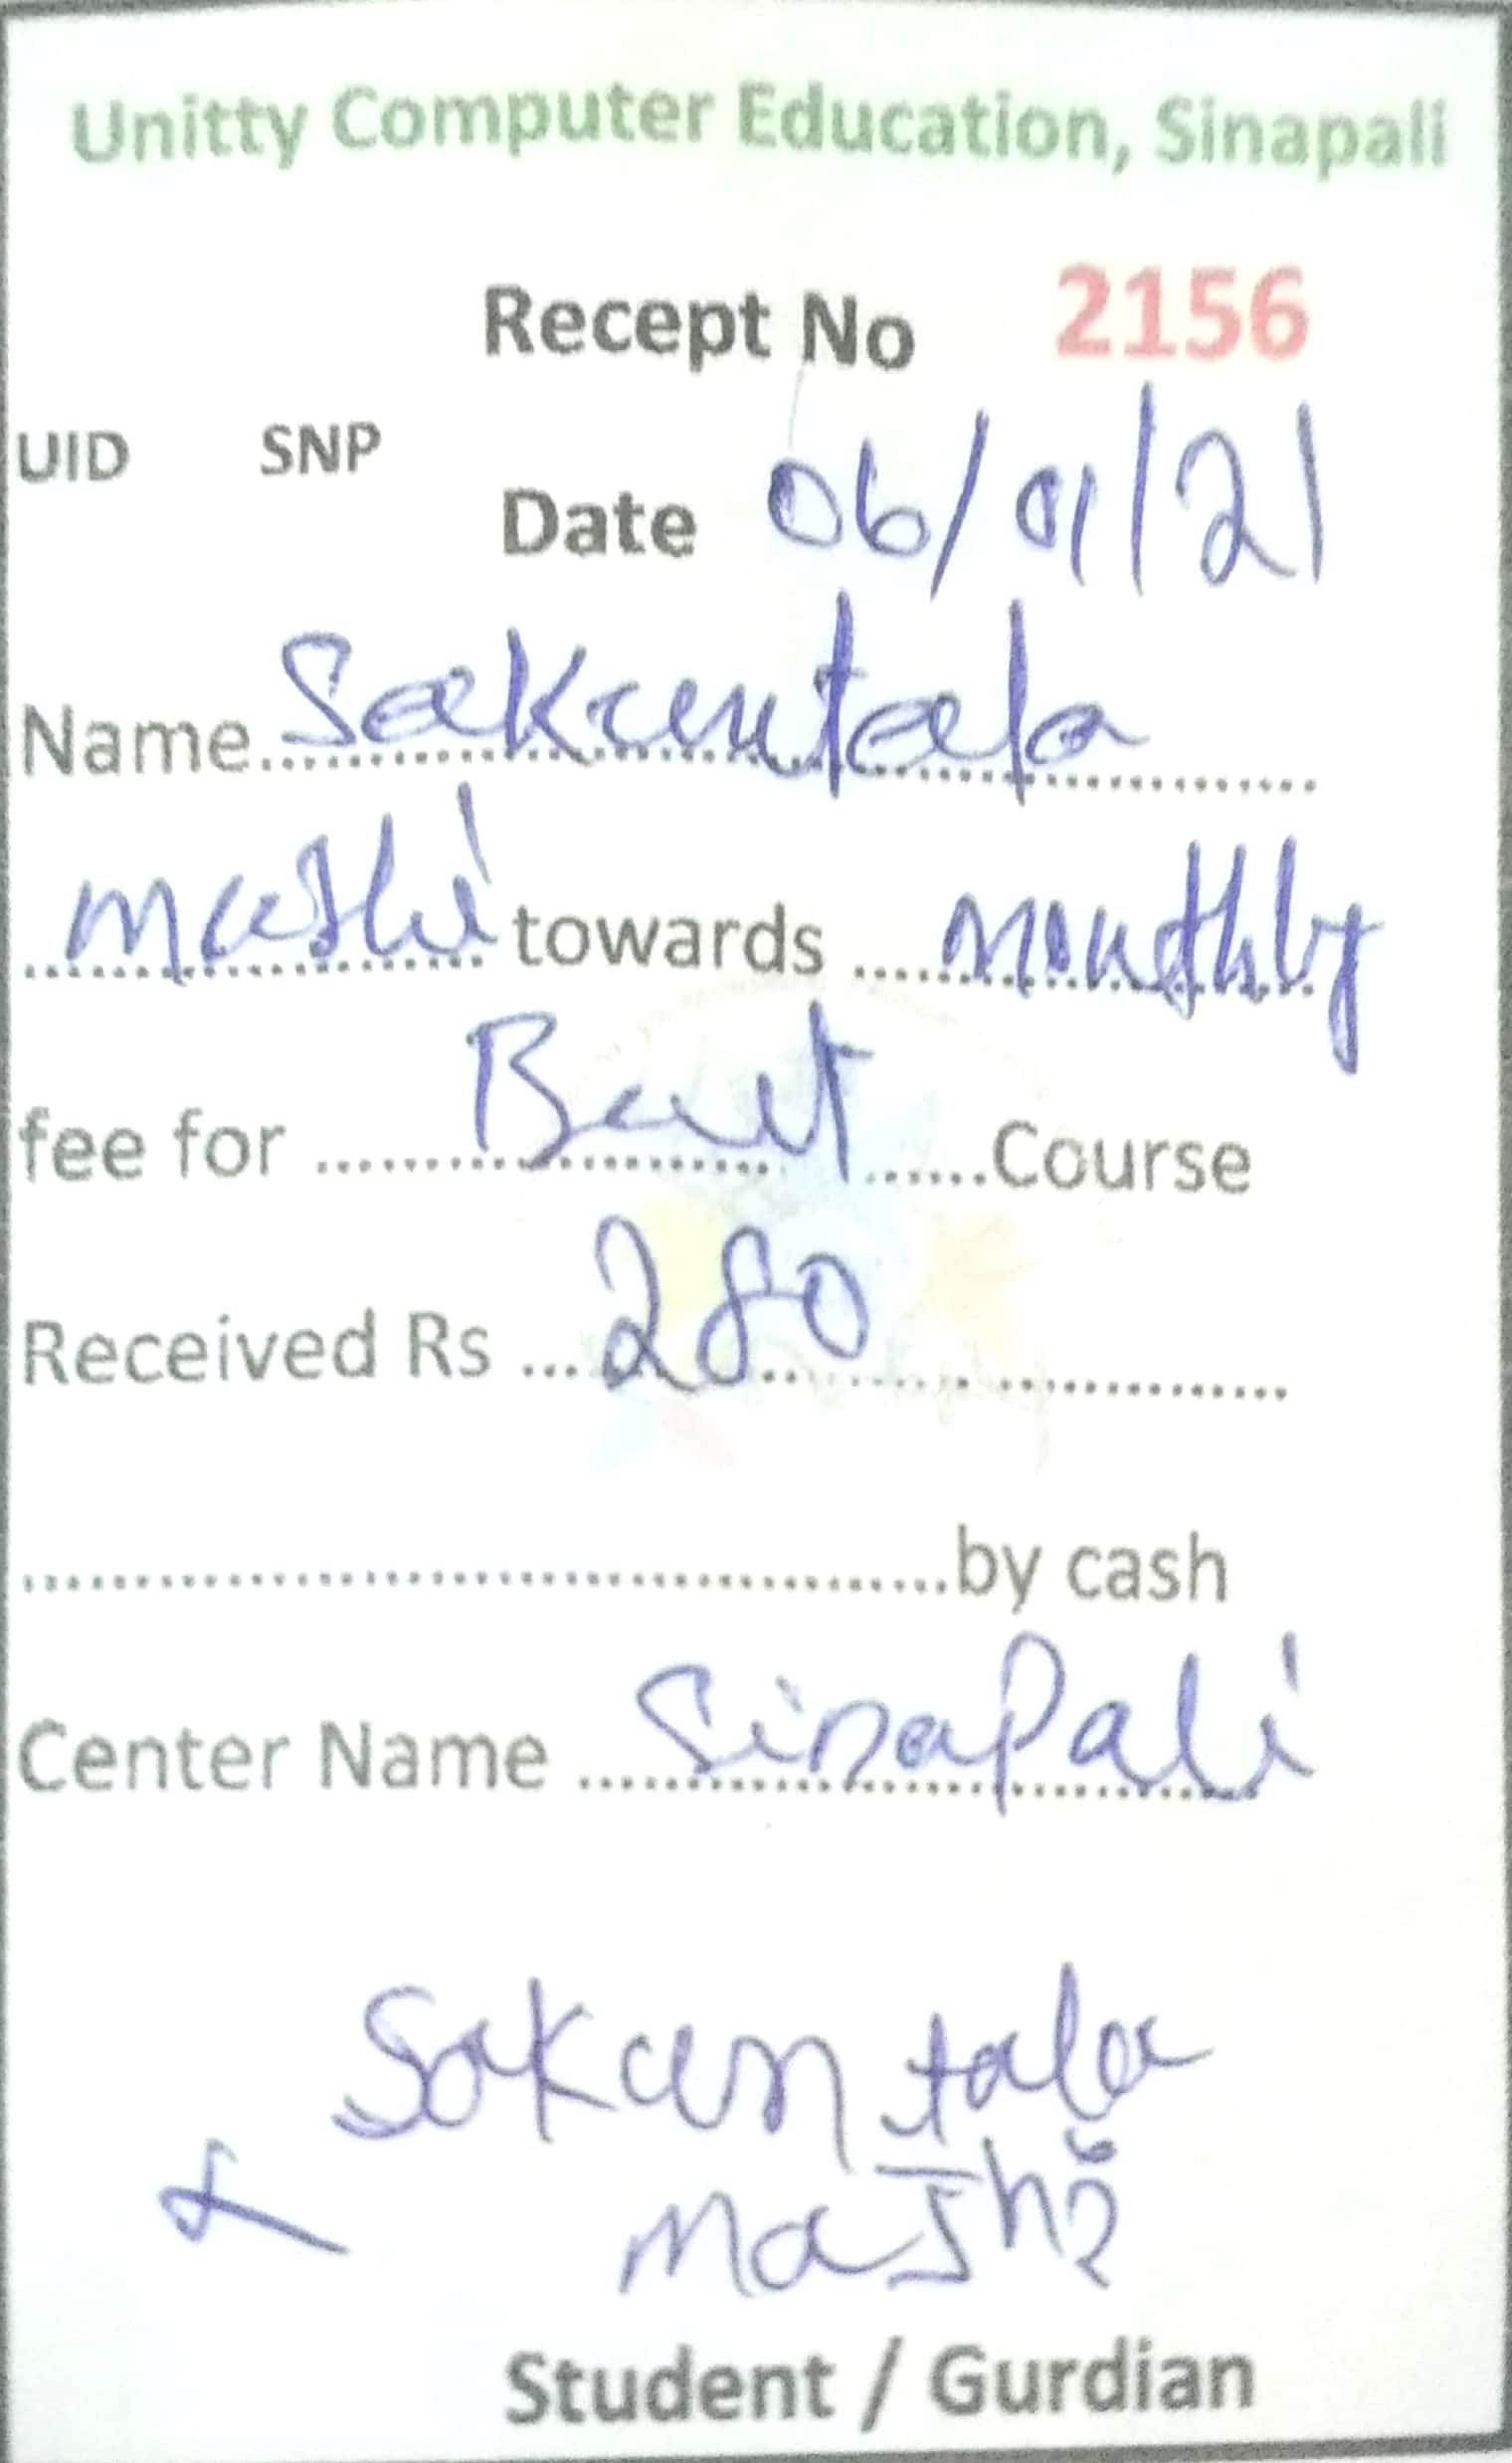 Unitty Computer Education, Sinapali
Recept No 2156
UID SNP
Date 06/01/21
Name..Sakuntala..........
..Mashi..towards ....Monthly
fee for ................Course
Received Rs ...280..........
..............................by cash
Center Name ....Sinapali
Sakuntala
Majhi
Student / Gurdian